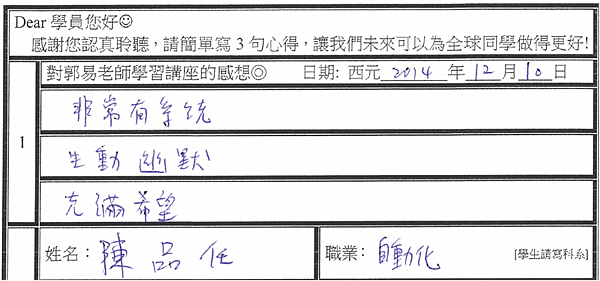 Dear 學員您好☺
感謝您認真聆聽，請簡單寫 3 句心得，讓我們未來可以為全球同學做得更好!
對郭易老師學習講座的感想◎ 日期: 西元 2014 年 12 月 10 日
1
非常有系統
生動幽默
充滿希望
姓名： 陳品任 職業： 自動化 [學生請寫科系]